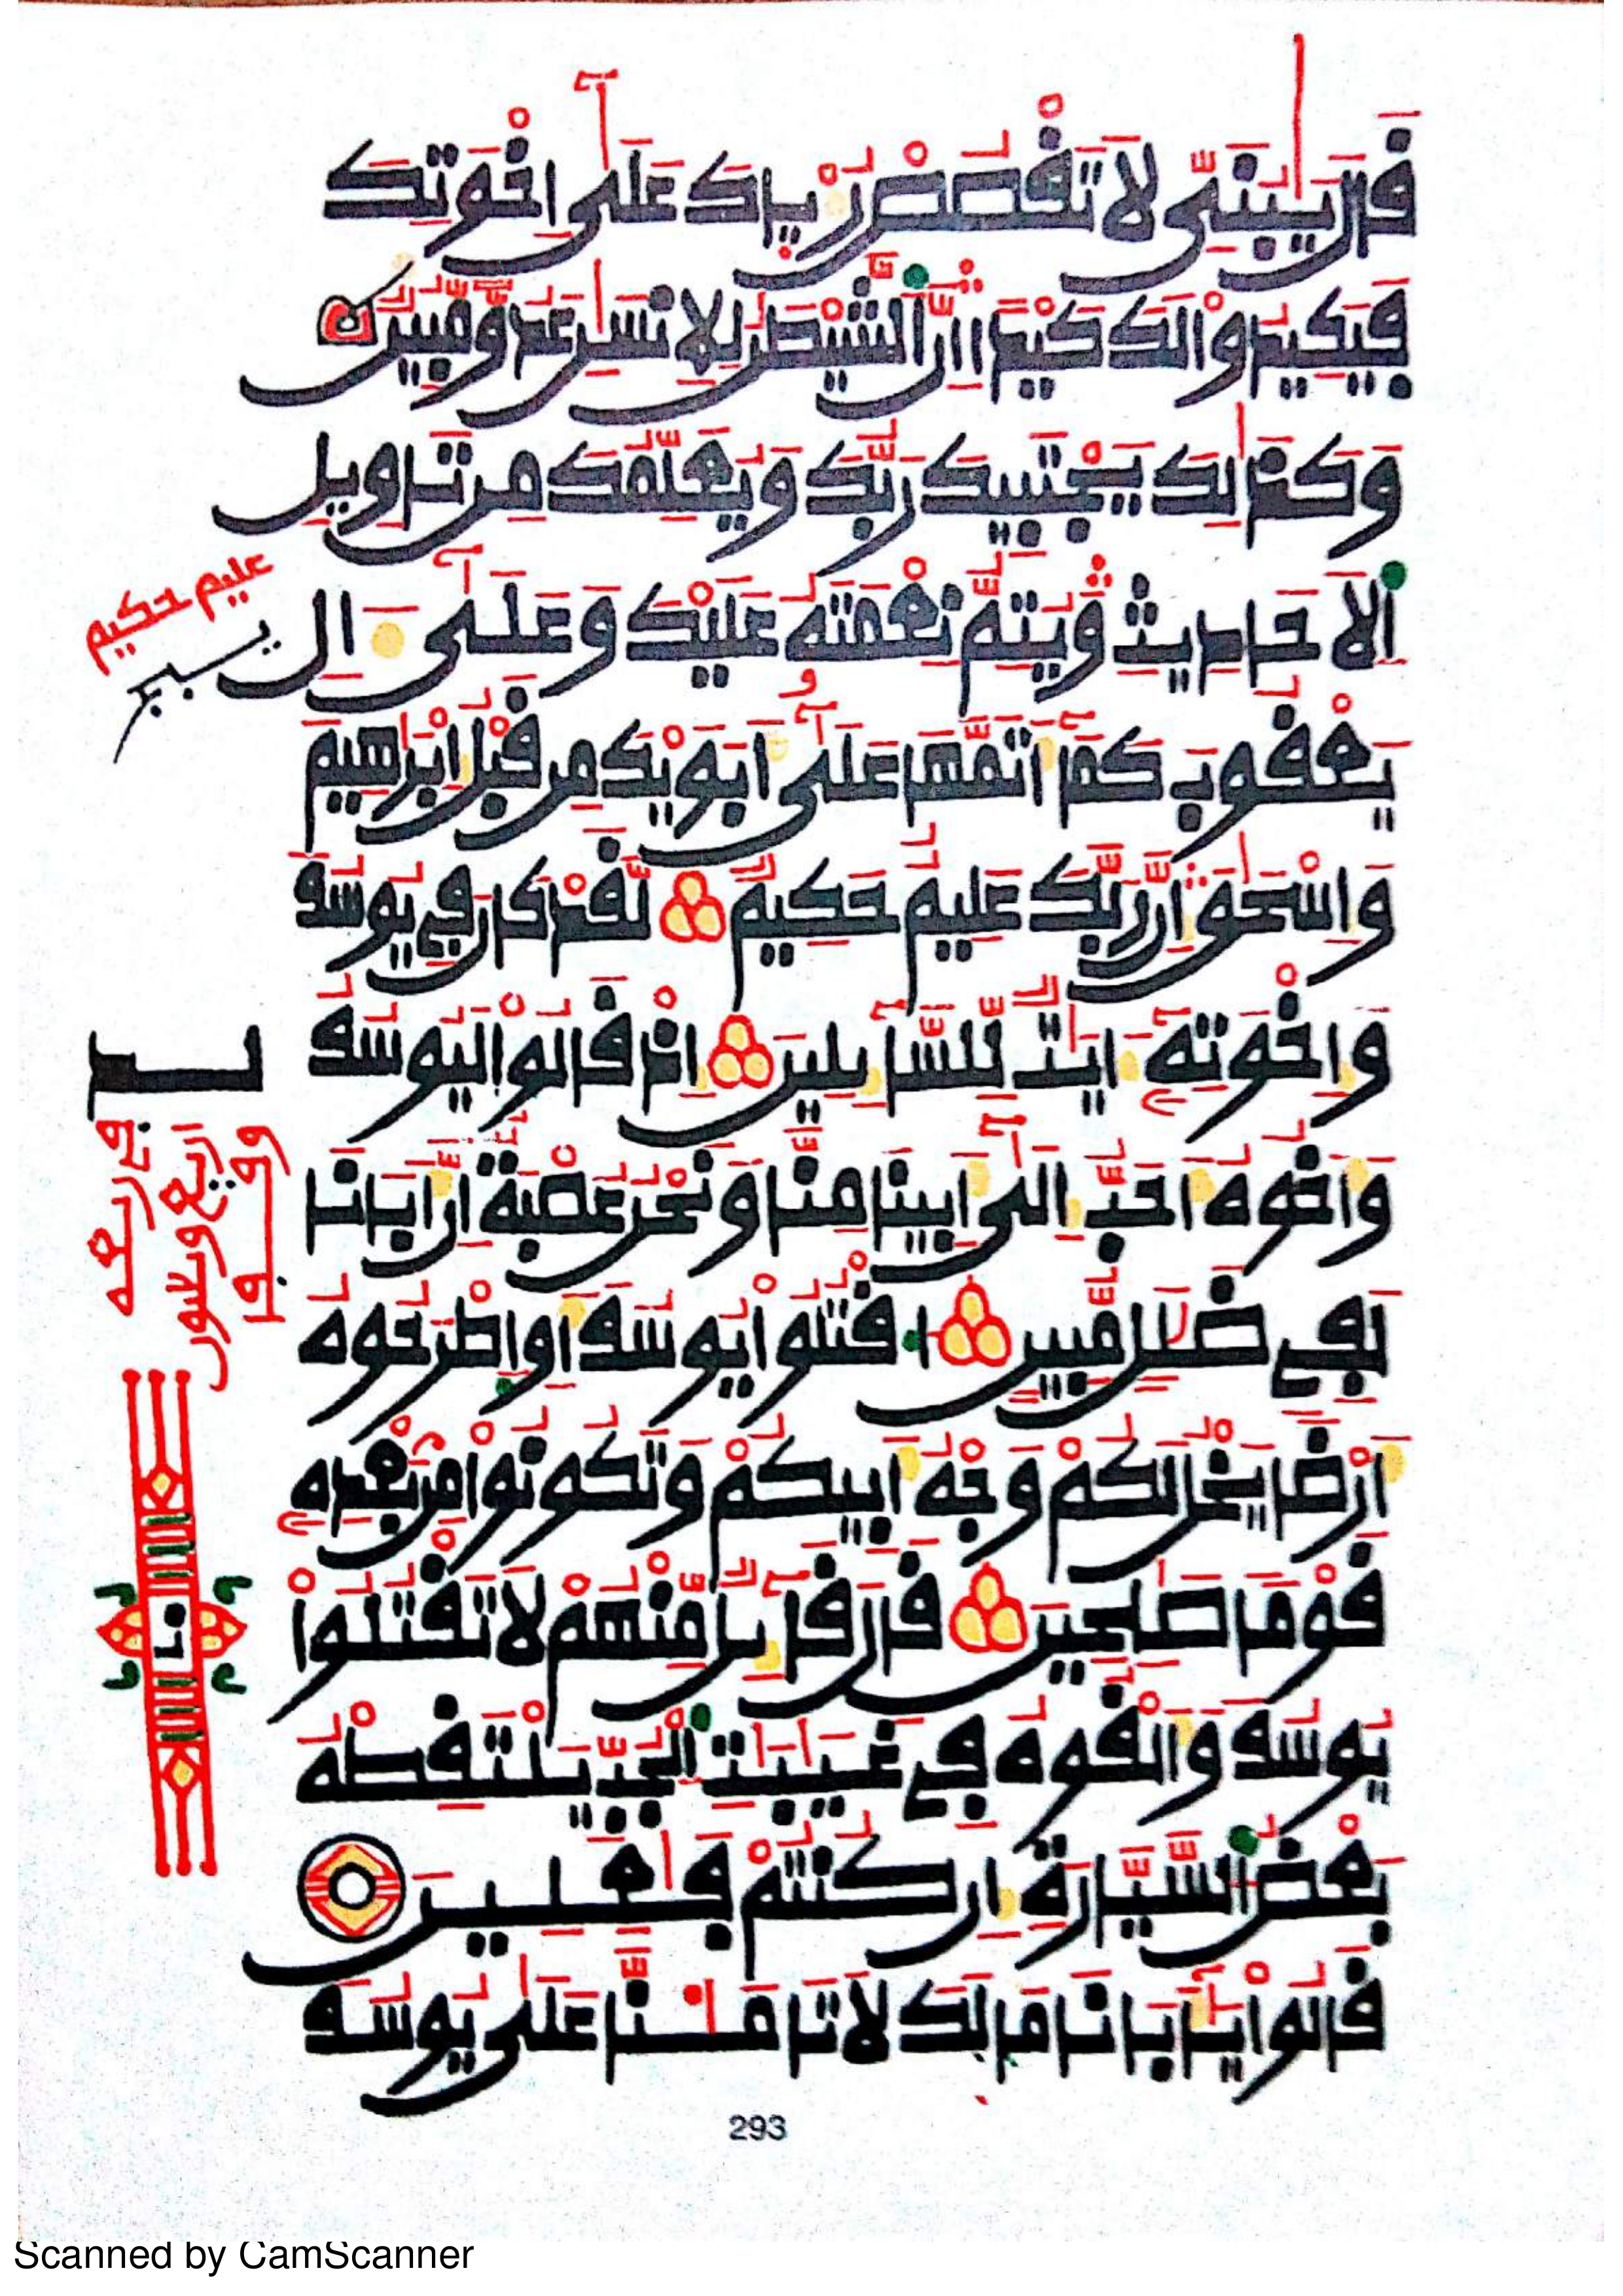 قَالَ يَٰبُنَيِّ لَا تَقْصُصْ رُءْيَاكَ عَلَىٰٓ إِخْوَتِكَ
فَيَكِيدُواْ لَكَ كَيْدًا إِنَّ ٱلشَّيْطَٰنَ لِلْإِنسَٰنِ عَدُوٌّ مُّبِينٌ
وَكَذَٰلِكَ يَجْتَبِيكَ رَبُّكَ وَيُعَلِّمُكَ مِن تَأْوِيلِ
ٱلْأَحَادِيثِ وَيُتِمُّ نِعْمَتَهُ عَلَيْكَ وَعَلَىٰٓ ءَالِ
عليم حكيم
يَعْقُوبَ كَمَآ أَتَمَّهَا عَلَىٰٓ أَبَوَيْكَ مِن قَبْلُ إِبْرَٰهِيمَ
وَإِسْحَٰقَ إِنَّ رَبَّكَ عَلِيمٌ حَكِيمٌ لَّقَدْ كَانَ فِي يُوسُفَ
وَإِخْوَتِهِۦٓ ءَايَٰتٌ لِّلسَّآئِلِينَ إِذْ قَالُواْ لَيُوسُفُ
وَأَخُوهُ أَحَبُّ إِلَىٰٓ أَبِينَا مِنَّا وَنَحْنُ عُصْبَةٌ إِنَّ أَبَانَا
لَفِي ضَلَٰلٍ مُّبِينٍ ٱقْتُلُواْ يُوسُفَ أَوِ ٱطْرَحُوهُ
أَرْضًا يَخْلُ لَكُمْ وَجْهُ أَبِيكُمْ وَتَكُونُواْ مِنۢ بَعْدِهِۦ
قَوْمًا صَٰلِحِينَ قَالَ قَآئِلٌ مِّنْهُمْ لَا تَقْتُلُواْ
يُوسُفَ وَأَلْقُوهُ فِي غَيَٰبَٰتِ ٱلْجُبِّ يَلْتَقِطْهُ
بَعْضُ ٱلسَّيَّارَةِ إِن كُنتُمْ فَٰعِلِينَ
قَالُواْ يَٰٓأَبَانَا مَا لَكَ لَا تَأْمَ۬نَّا عَلَىٰ يُوسُفَ
293
Scanned by CamScanner